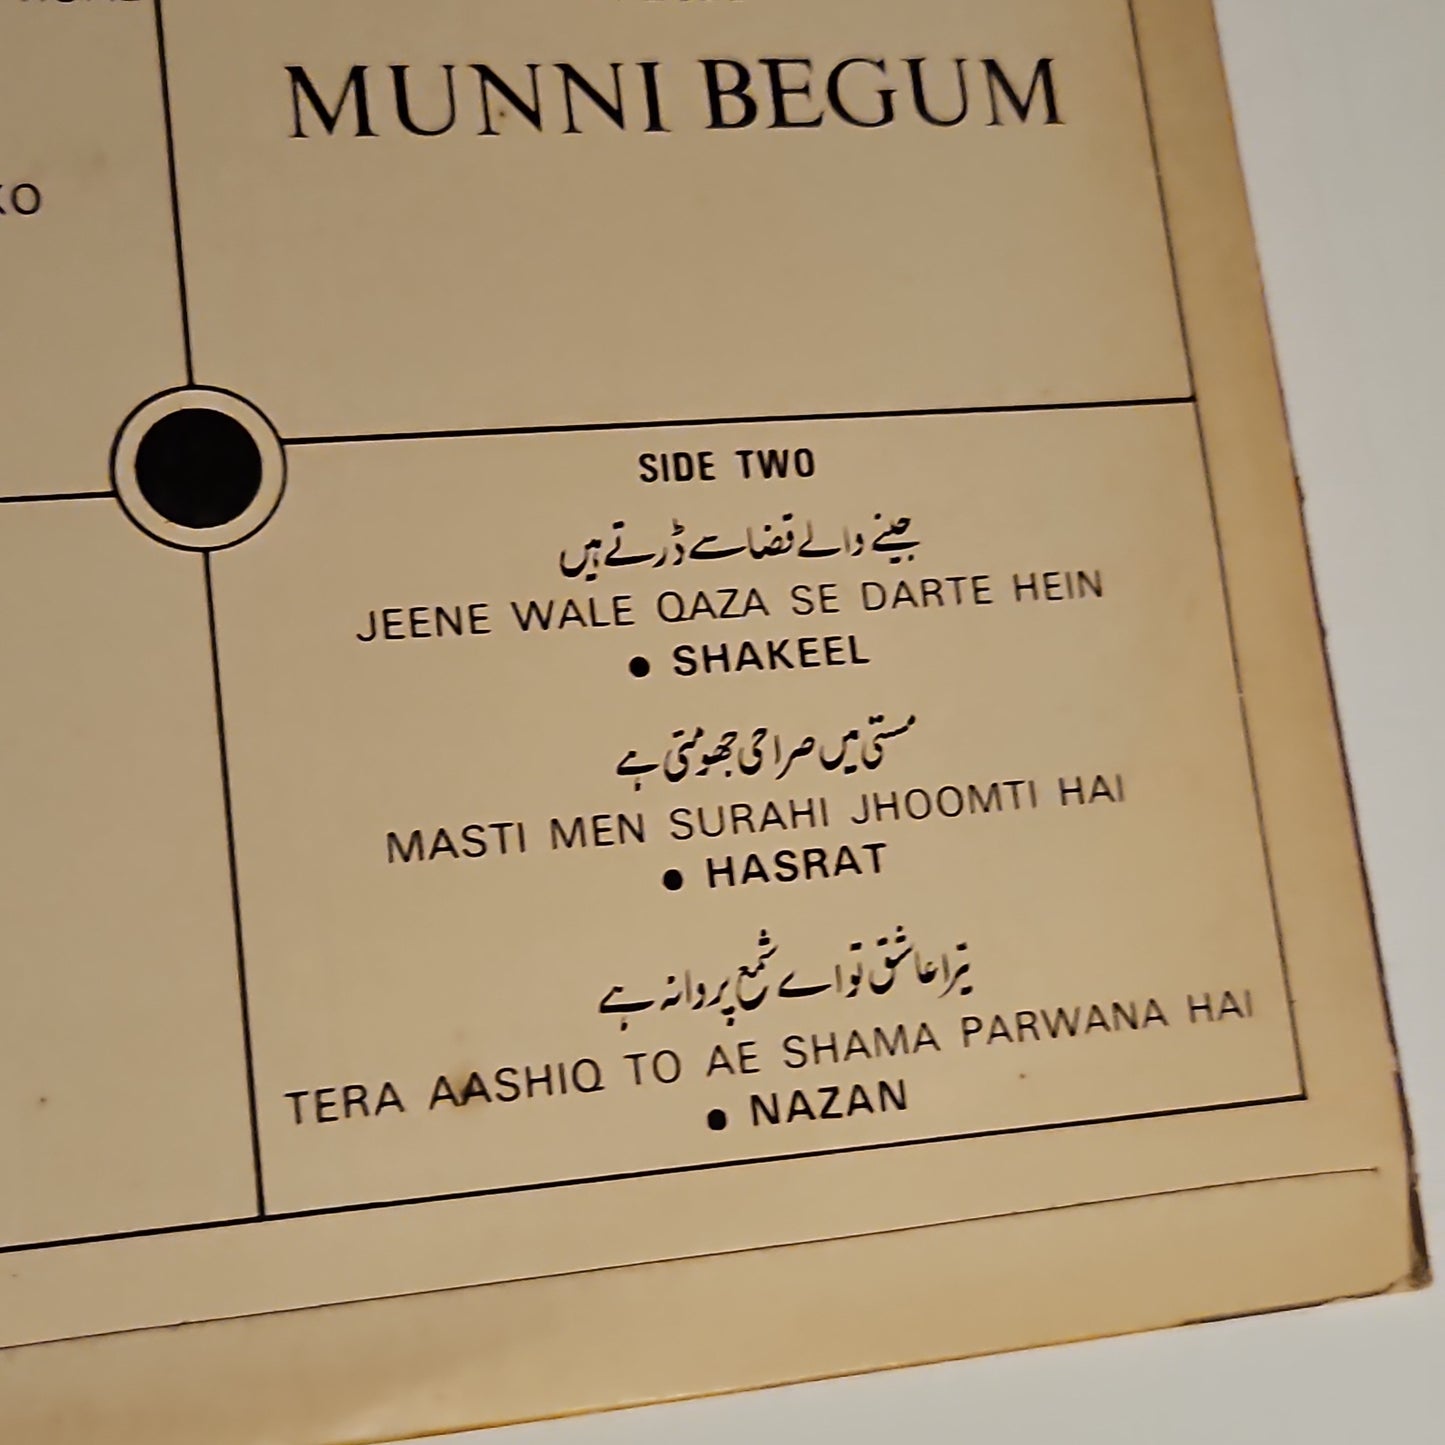 KO
MUNNI BEGUM
SIDE TWO
جینے والے قضا سے ڈرتے ہیں
JEENE WALE QAZA SE DARTE HEIN
● SHAKEEL
مستی میں صراحی جھومتی ہے
MASTI MEN SURAHI JHOOMTI HAI
● HASRAT
تیرا عاشق تو اے شمع پروانہ ہے
TERA AASHIQ TO AE SHAMA PARWANA HAI
● NAZAN